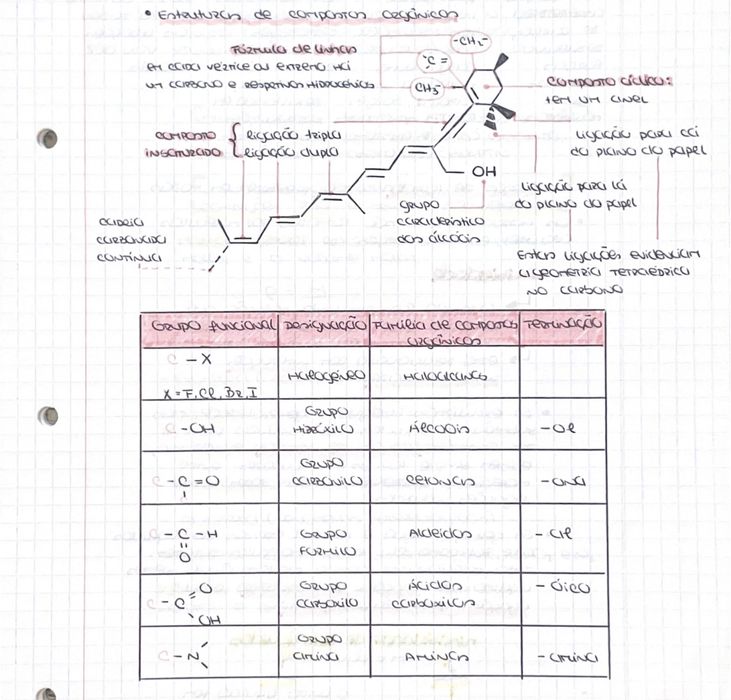 • Estruturas de compostos orgânicos
Fórmula de linhas
em cada vértice ou extremo há
um carbono e respetivos hidrogénios
-CH₂-
C=
CH₃-
composto cíclico:
tem um anel
composto insaturado { ligação tripla
ligação dupla
ligação para cá
do plano do papel
OH
ligação para lá
do plano do papel
grupo
característico
dos álcoois
cadeia
carbonada
contínua
Estas ligações evidenciam
a geometria tetraédrica
no carbono
Grupo funcional Designação Família de compostos orgânicos Terminação
C-X
X = F, Cl, Br, I
Halogéneo Haloalcanos
C-OH
Grupo
Hidróxilo
Álcoois
-ol
C-C=O
Grupo
carbonilo
cetonas
-ona
C-C-H
O
Grupo
Formilo
Aldeídos
-al
C-C=O
OH
Grupo
carboxilo
Ácidos
carboxílos
-óico
C-N
Grupo
amina
Aminas
-amina